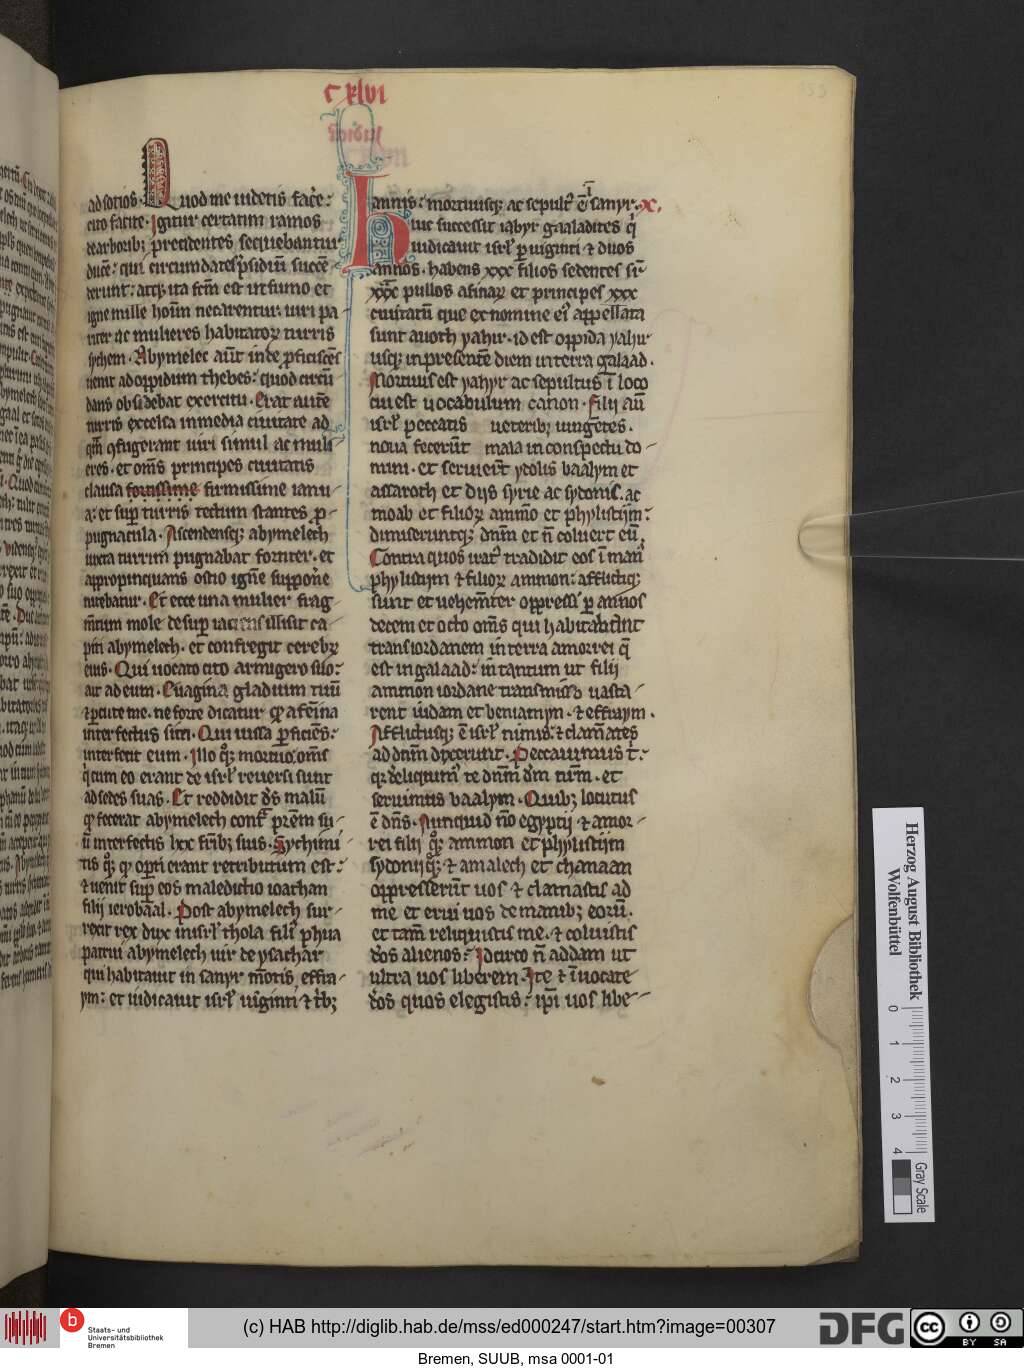 C xlvi
ad sotios. Quod me videtis facere:
cito facite. Igitur certatim ramos
de arboribꝫ precidentes sequebantur
ducē: qui circumdantes p̄sidiū succē-
derunt: atqꝫ ita fcm̄ est ut fumo et
igne mille hoīm necarentur. viri pa-
riter ac mulieres habitatoꝝ turris
sychem. Abymelec aūt inde ꝓficiscēs
venit ad oppidum thebes: quod circū
dans obsidebat exercitu. Erat autē
turris excelsa in media civitate ad
qm̄ ꝯfugerant viri simul ac muli-
eres. et om̄s principes civitatis
clausa fortissime firmissime ianu-
a: et suꝑ turris tectum stantes ꝓ-
pugnacula. Ascendensqꝫ abymelech
iuxta turrim pugnabat fortiter. et
appropinquans ostio ignē supponē
nitebatur. Et ecce una mulier frag-
m̄tum mole desuꝑ iaciens illisit ca-
piti abymelech. et confregit cerebꝝ
eius. Qui vocato cito armigero suo:
ait ad eum. Evagina gladium tuū
et ꝑcute me. ne forte dicatur qꝫ a femīna
interfectus sim. Qui iussa ꝑficiens:
interfecit eum. Illo qꝫ mortuo, om̄s
q̇ cum eo erant de isrl̄ reversi sunt
ad sedes suas. Et reddidit d̄s malū
qꝫ fecerat abymelech contͣ prēm su-
ū interfectis lxx frībꝫ suis. Sychimi-
tis qꝫ. qꝫ oꝑati erant retributum est:
et venit suꝑ eos maledictio ioathan
filii ierobaal. Post abymelech sur-
rexit rex dux in isrl̄ thola filiꝰ phua
patrui abymelech vir de ysachar
qui habitavit in sanyr mōtis effra-
ym: et iudicavit isrl̄ viginti et tribꝫ
annis: mortuusqꝫ ac sepultꝰ ē ī sanyr. x.
Huic successit iabyr gaaladites q̇
iudicavit isrl̄ ꝑ viginti et duos
annos. habens xxx filios sedentes sū-
xxx pullos asinaꝝ et principes xxx
civitatū que ex nomine eiꝰ appellata
sunt avoth yahir. id est oppida yahir
usqꝫ in presentē diem in terra galaad.
Mortuus est yahyr ac sepultus ī loco
cui est vocabulum canon. filii aū
isrl̄ peccatis veteribꝫ iungētes.
nova fecerūt mala in conspectu do-
mini. et servierūt ydolis baalym et
assaroth et diis syrie ac sydonis. ac
moab et filioꝝ ammō et phylistijm:
dimiseruntqꝫ dn̄m et n̄ coluert eū.
Contra quos iratꝰ tradidit eos ī manꝰ
phylistijm et filioꝝ ammon: afflictiqꝫ
sunt et vehemēter oppressi ꝑ annos
decem et octo om̄s qui habitabant
trans iordanem in terra amorrei q̄
est in galaad: in tantum ut filij
ammon iordane transmisso vasta-
rent iudam et beniamyn. et effraym.
Afflictusqꝫ ē isrl̄ nimis: et clamātes
ad dn̄m dixerunt. Peccavimus t:
qꝫ dereliquimꝰ te dn̄m dm̄ nrm̄. et
servimus baalym. Quibꝫ locutus
ē dn̄s. Nunquid nō egyptij et amor-
rei filij qꝫ ammon et phylistijm
sydonij qꝫ et amalech et chanaan
oppresserūt vos et clamastis ad
me et erui vos de manibꝫ eorū.
et tam̄ reliquistis me. et coluistis
deos alienos: Idcirco n̄ addam ut
ultra vos liberem. Ite et īvocate
deos quos elegistis: ip̄i vos libe-
Herzog August Bibliothek
Wolfenbüttel
0 1 2 3 4
Gray Scale
b Staats- und
Universitätsbibliothek
Bremen
(c) HAB http://diglib.hab.de/mss/ed000247/start.htm?image=00307
DFG
cc BY SA
Bremen, SUUB, msa 0001-01